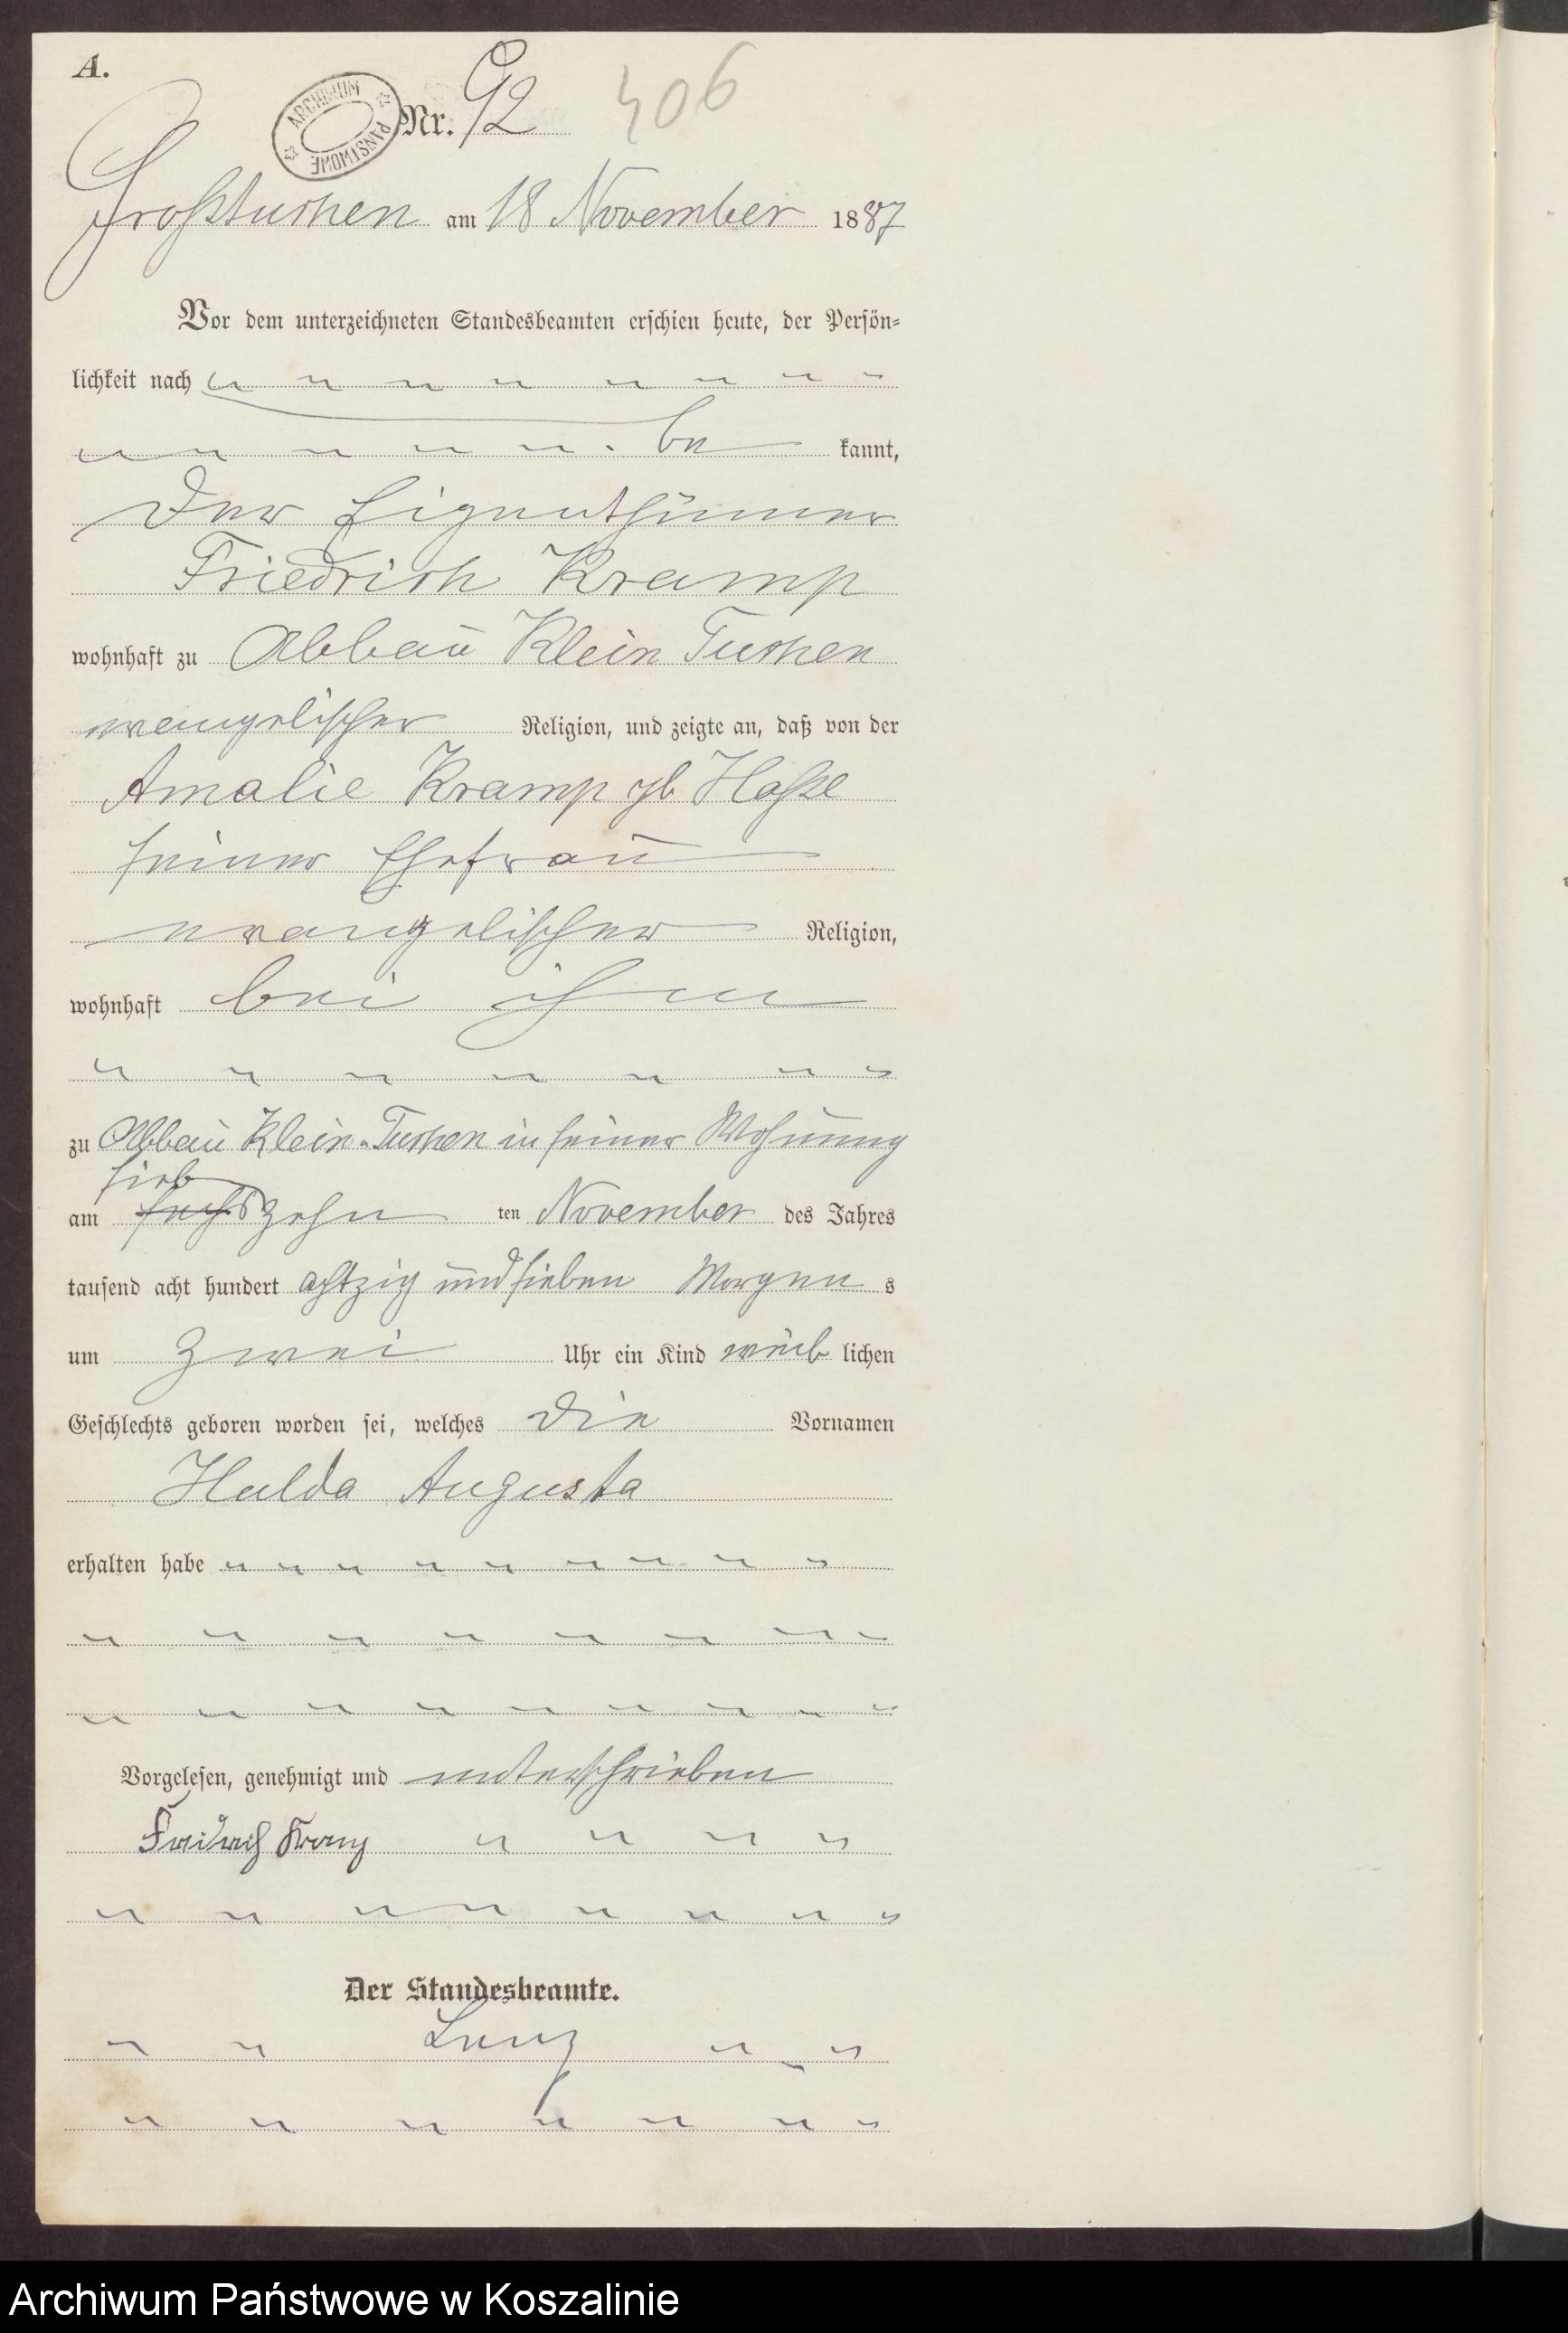 A.
ARCHIWUM PAŃSTWOWE
Nr. 92 406
Großtuchen am 18 November 1887
Vor dem unterzeichneten Standesbeamten erschien heute, der Persön-
lichkeit nach
be kannt,
Der Eigenthümer
Friedrich Kramp
wohnhaft zu Abbau Klein Tuchen
evangelischer Religion, und zeigte an, daß von der
Amalie Kramp gb Haße
seiner Ehefrau
evangelischer Religion,
wohnhaft bei ihm
zu Abbau Klein-Tuchen in seiner Wohnung
sieb
am sechszehn ten November des Jahres
tausend acht hundert achtzig und sieben Morgen s
um zwei Uhr ein Kind weib lichen
Geschlechts geboren worden sei, welches die Vornamen
Hulda Augusta
erhalten habe
Vorgelesen, genehmigt und unterschrieben
Friedrich Kramp
Der Standesbeamte.
Archiwum Państwowe w Koszalinie